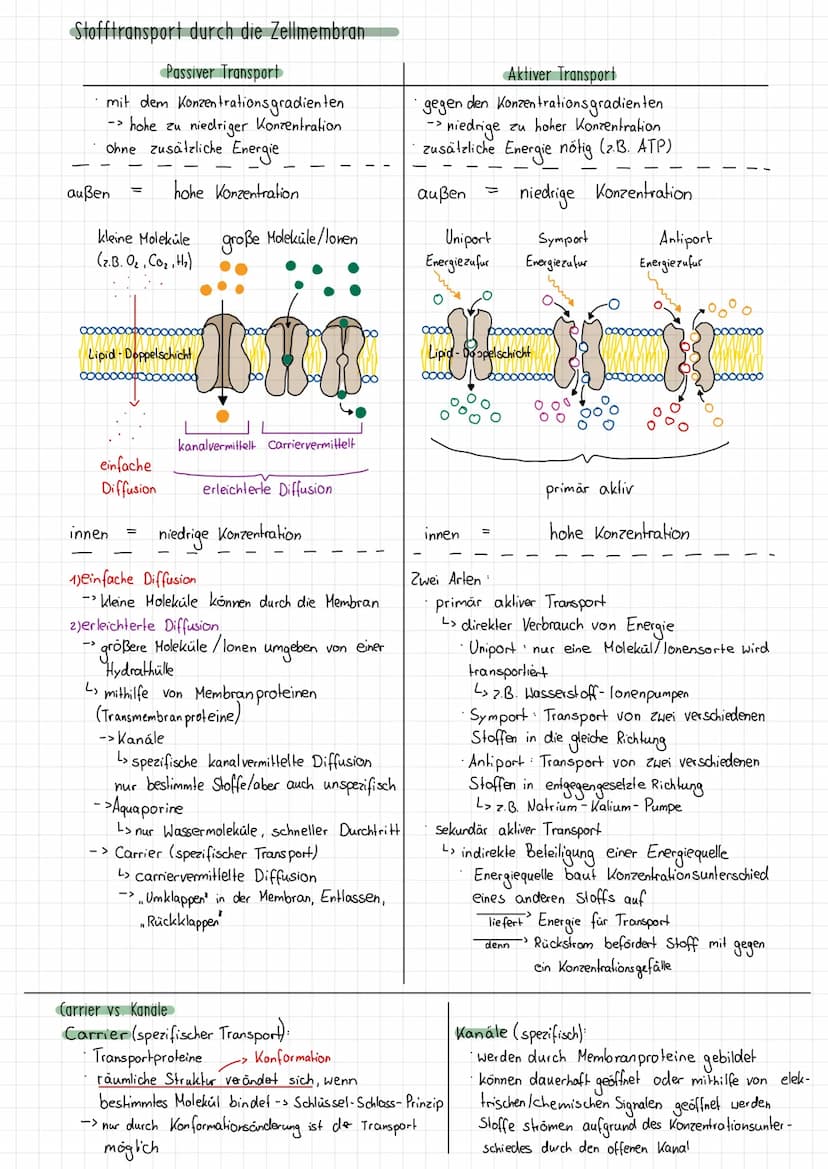 Stofftransport durch die Zellmembran
Passiver Transport
· mit dem Konzentrationsgradienten
-> hohe zu niedriger Konzentration
· ohne zusätzliche Energie
außen = hohe Konzentration
kleine Moleküle
(z.B. O2, Co2, H2)
große Moleküle/Ionen
Lipid-Doppelschicht
kanalvermittelt
Carriervermittelt
einfache
Diffusion
erleichterte Diffusion
innen = niedrige Konzentration
1) einfache Diffusion
-> kleine Moleküle können durch die Membran
2) erleichterte Diffusion
-> größere Moleküle/Ionen umgeben von einer
Hydrathülle
↳ mithilfe von Membranproteinen
(Transmembranproteine)
-> Kanäle
↳ spezifische kanalvermittelte Diffusion
nur bestimmte Stoffe/aber auch unspezifisch
-> Aquaporine
↳ nur Wassermoleküle, schneller Durchtritt
-> Carrier (spezifischer Transport)
↳ carriervermittelte Diffusion
-> "Umklappen" in der Membran, Entlassen,
"Rückklappen"
Aktiver Transport
· gegen den Konzentrationsgradienten
-> niedrige zu hoher Konzentration
· zusätzliche Energie nötig (z.B. ATP)
außen = niedrige Konzentration
Uniport
Energiezufur
Symport
Energiezufur
Antiport
Energiezufur
Lipid-Doppelschicht
primär aktiv
innen = hohe Konzentration
Zwei Arten:
· primär aktiver Transport
↳ direkter Verbrauch von Energie
· Uniport: nur eine Molekül/Ionensorte wird
transportiert
↳ z.B. Wasserstoff-Ionenpumpen
· Symport: Transport von zwei verschiedenen
Stoffen in die gleiche Richtung
· Antiport: Transport von zwei verschiedenen
Stoffen in entgegengesetzte Richtung
↳ z.B. Natrium-Kalium-Pumpe
· sekundär aktiver Transport
↳ indirekte Beteiligung einer Energiequelle
· Energiequelle baut Konzentrationsunterschied
eines anderen Stoffs auf
liefert> Energie für Transport
denn> Rückstrom befördert Stoff mit gegen
ein Konzentrationsgefälle
Carrier vs Kanäle
Carrier (spezifischer Transport):
· Transportproteine -> Konformation
· räumliche Struktur verändet sich, wenn
bestimmtes Molekül bindet -> Schlüssel-Schloss-Prinzip
-> nur durch Konformationsänderung ist der Transport
möglich
Kanäle (spezifisch):
· werden durch Membranproteine gebildet
· können dauerhaft geöffnet oder mithilfe von elek-
trischen/chemischen Signalen geöffnet werden
· Stoffe strömen aufgrund des Konzentrationsunter-
schiedes durch den offenen Kanal